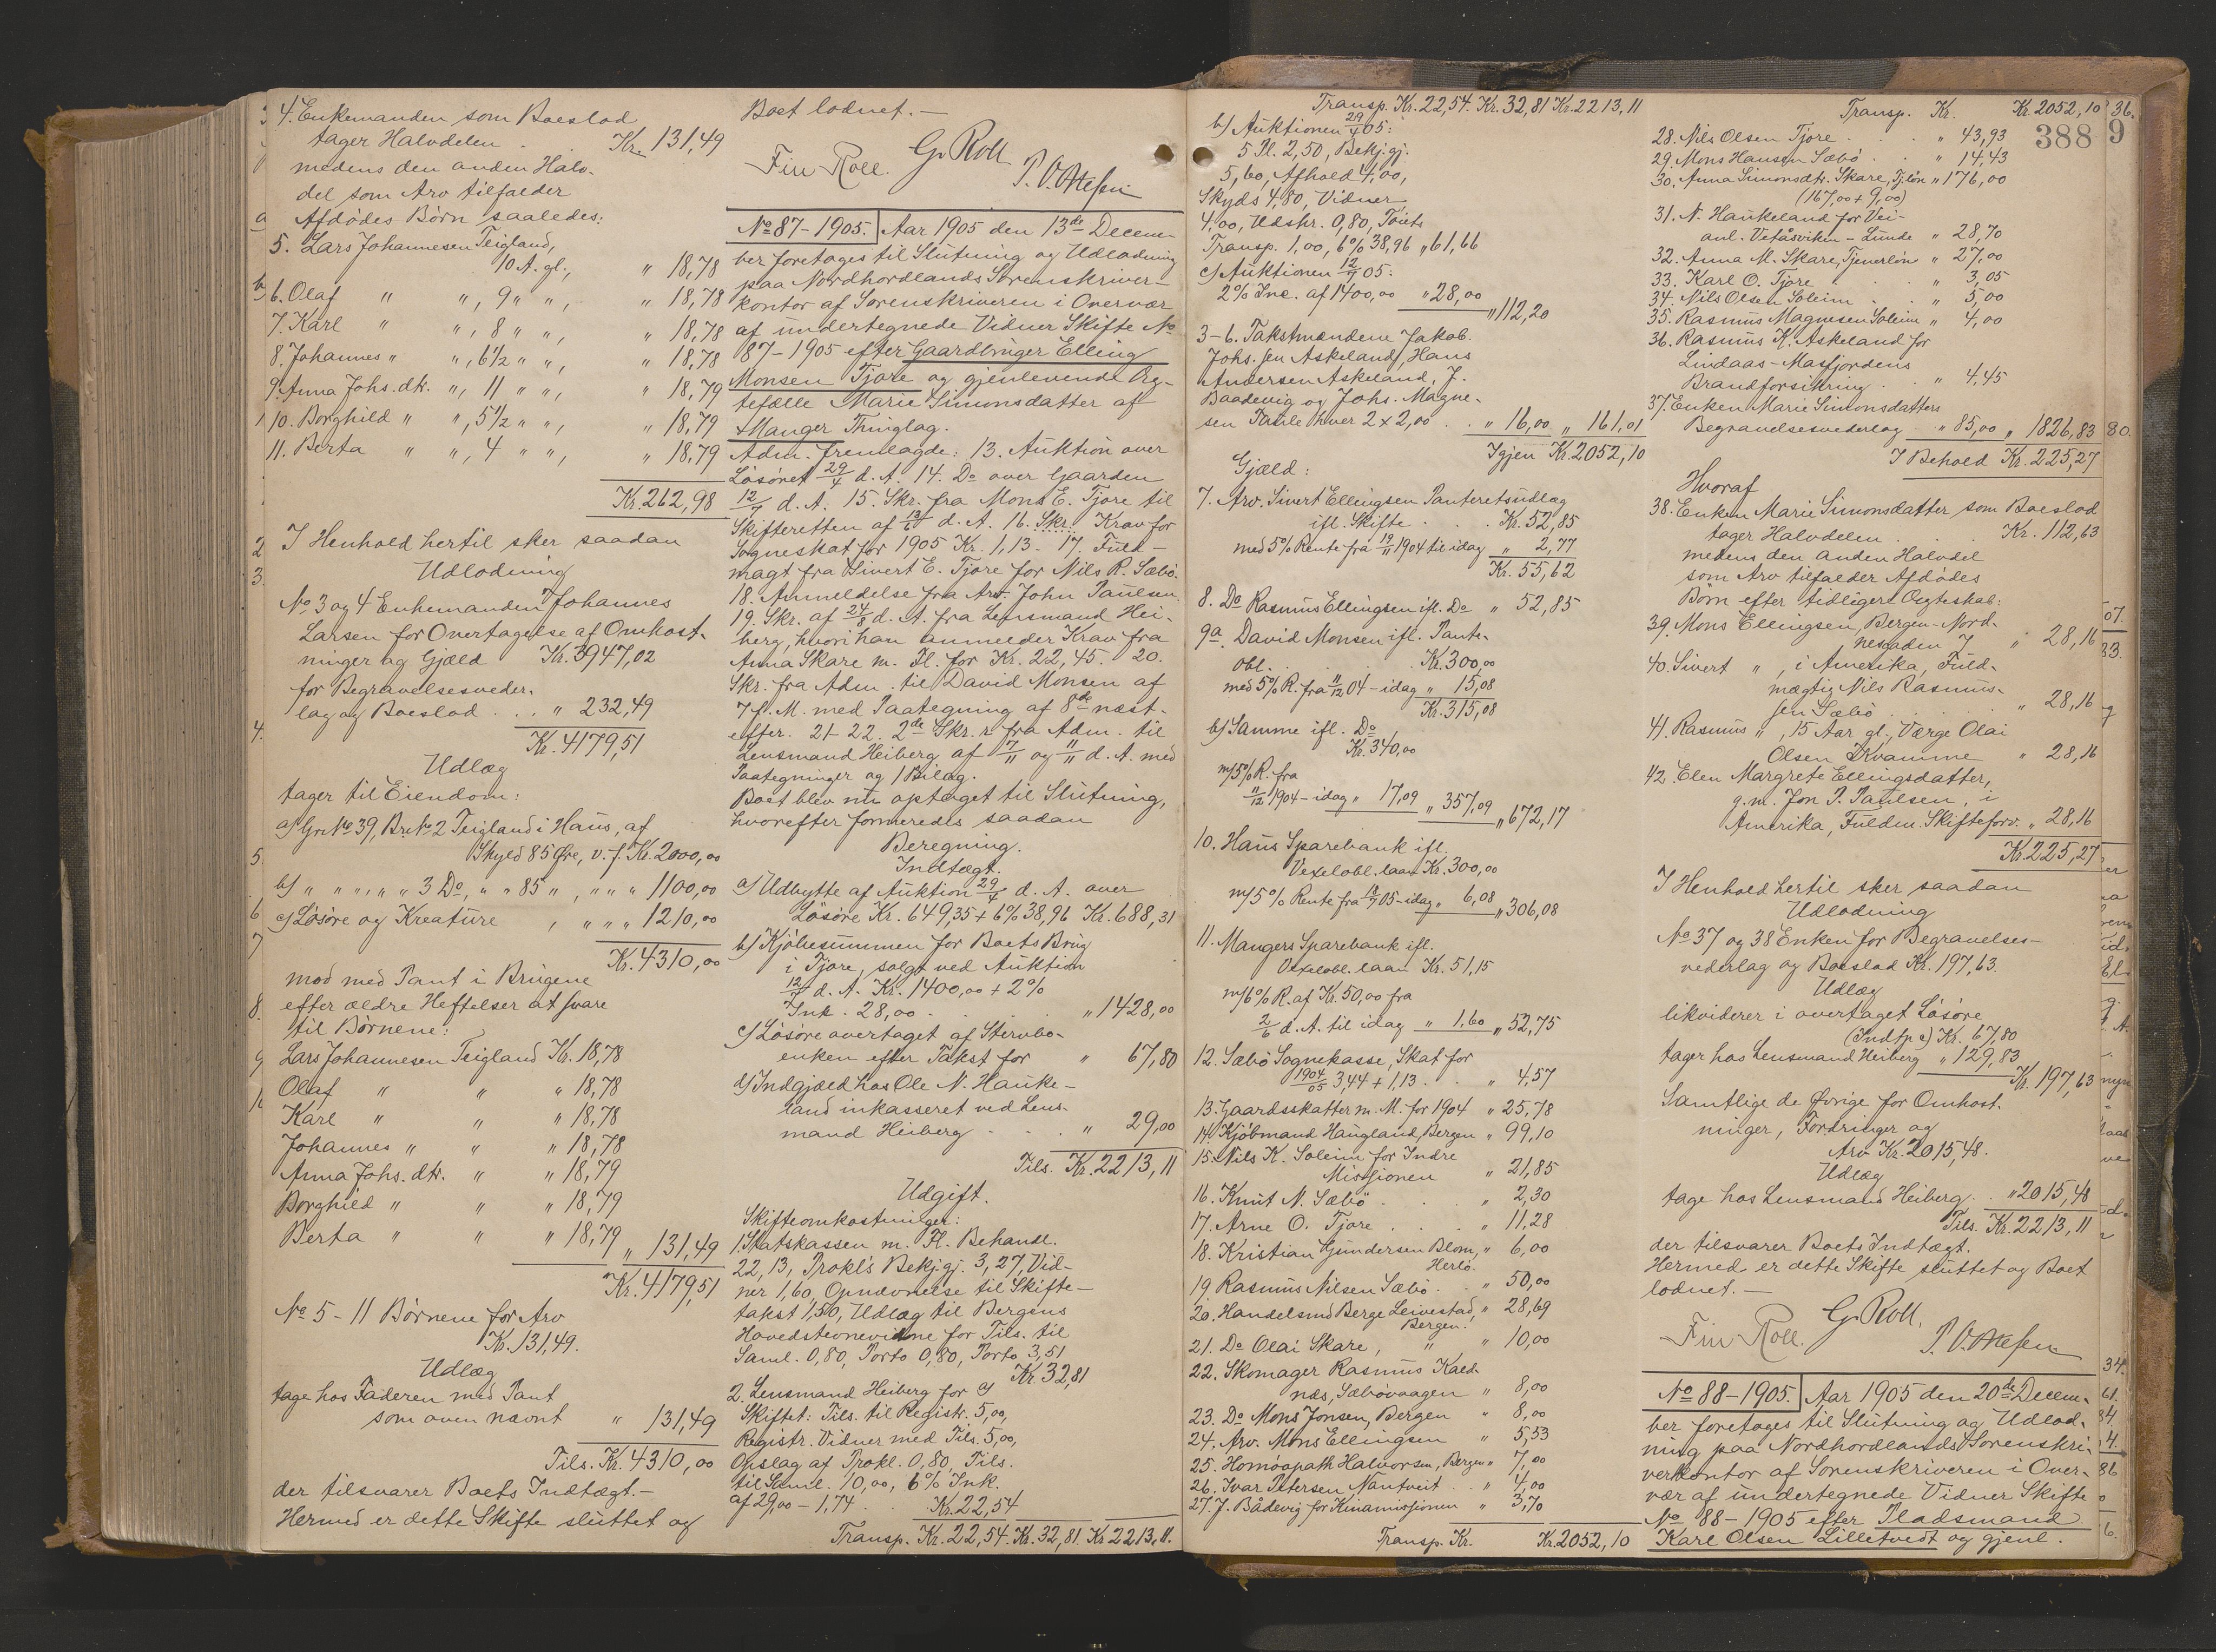 4. Enkemanden som Boeslod
tager Halvdelen . Kr. 131,49
medens den anden Halv-
del som Arv tilfalder
Afdødes Børn saaledes:
5. Lars Johannesen Teigland,
10 A. gl., " 18,78
6. Olaf " ", 9 " ", " 18,78
7. Karl " ", 8 " ", " 18,78
8. Johannes " ", 6 1/2 " ", " 18,78
9. Anna Johs. dtr. ", 11 " ", " 18,79
10. Borghild " ", 5 1/2 " ", " 18,79
11. Berta " ", 4 " ", " 18,79
Kr. 262,98
I Henhold hertil sker saadan
Udlodning
No 3 og 4 Enkemanden Johannes
Larsen for Overtagelse af Omkost-
ninger og Gjæld Kr. 3947,02
for Begravelsesveder-
lag og Boeslod . . " 232,49
Kr. 4179,51
Udlæg
tager til Eiendom:
a) Gr. No 39, Br. No 2 Teigland i Haus, af
Skyld 85 Øre, v. f. Kr. 2000,00
b) " " " " " 3 Do, " " 85 " , " " " 1100,00
c) Løsøre og Kreature , " " " 1210,00
Kr. 4310,00
mod med Pant i Brugene
efter ældre Heftelser at svare
til Børnene:
Lars Johannesen Teigland Kr. 18,78
Olaf " " " 18,78
Karl " " " 18,78
Johannes " " " 18,78
Anna Johs. dtr. " " 18,79
Borghild " " " 18,79
Berta " " " 18,79 " 131,49
Kr. 4179,51
No 5 - 11 Børnene for Arv
Kr. 131,49.
Udlæg
tage hos Faderen med Pant
som oven nævnt " 131,49
Tils. Kr. 4310,00
der tilsvarer Boets Indtægt.-
Hermed er dette Skifte sluttet og
Boet lodnet. -
G. Roll
Fin Roll. P. O. Mesen
No 87 - 1905. Aar 1905 den 13de Decem-
ber foretages til Slutning og Udlodning
paa Nordhordlands Sorenskriver-
kontor af Sorenskriveren i Overvær
af undertegnede Vidner Skifte No
87 - 1905 efter Gaardbruger Elling
Monsen Tjore og gjenlevende Æg-
tefælle Marie Simonsdatter af
Manger Thinglag.
Adm. fremlagde: 13. Auktion over
Løsøret 29/4 d. A. 14. Do over Gaarden
12/7 d. A. 15. Skr. fra Mons E. Tjore til
Skifteretten af 13/6 d. A. 16. Skr. Krav for
Sogneskat for 1905 Kr. 1,13 - 17. Fuld-
magt fra Sivert E. Tjore for Nils R. Sæbø.
18. Anmeldelse fra Arv. John Paulsen.
19. Skr. af 24/8 d. A. fra Lensmand Hei-
berg, hvori han anmelder Krav fra
Anna Skare m. Fl. for Kr. 22,45. 20.
Skr. fra Adm. til David Monsen af
7 f. M. med Paategning af 8de næst-
efter. 21 - 22. 2de Skr. r fra Adm. til
Lensmand Heiberg af 7/11 og 11/11 d. A. med
Paategninger og 1 Bilag.
Boet blev nu optaget til Slutning,
hvorefter formeredes saadan
Beregning.
Indtægt.
a) Udbytte af Auktion 29/4 d. A. over
Løsøre Kr. 649,35 + 6% 38,96 Kr. 688,31
b) Kjøbesummen for Boets Brug
i Tjore, solgt ved Auktion
12/7 d. A. Kr. 1400,00 + 2%
Ink. 28,00 . . . " 1428,00
c) Løsøre overtaget af Stervbo-
enken efter Takst for " 67,80
d) Indgjæld hos Ole N. Hauke-
land inkasseret ved Lens-
mand Heiberg . . . " 29,00
Tils. Kr. 2213,11
Udgift.
Skifteomkostninger:
1. Statskassen m. Fl. Behandl.
22,13, Prokl's Bekj.gj. 3,27, Vid-
ner 1,60, Opnævnelse til Skifte-
takst 1,50, Udlæg til Bergens
Hovedstevnevidne for Tils. til
Saml. 0,80, Porto 0,80, Porto 3,51
Kr. 32,81
2. Lensmand Heiberg for a)
Skiftet: Tils. til Registr. 5,00,
Registr. Vidner med Tils. 5,00,
Opslag af Prokl. 0,80, Tils.
til Saml. 10,00, 6% Ink.
af 29,00 - 1,74 . . Kr. 22,54
Transp. Kr. 22,54. Kr. 32,81. Kr. 2213,11.
Transp. Kr. 22,54. Kr. 32,81 Kr. 2213,11
b) Auktionen 29/4 05:
5 Pl. 2,50, Bekj.gj.
5,60, Afhold 4,00,
Skyds 4,80, Vidner
4,00, Udskr. 0,80, Toiets
Transp. 1,00, 6% 38,96 " 61,66
c) Auktionen 12/7 05:
2% Inc. af 1400,00 " 28,00
" 112,20
3 - 6. Takstmændene Jakob
Johs.sen Askeland, Hans
Andersen Askeland, J.
Baadevig og Johs. Magne-
sen Taule hver 2 x 2,00 . . " 16,00 " 161,01
Igjen Kr. 2052,10
Gjæld:
7. Arv. Sivert Ellingsen Panteretsudlæg
ifl. Skifte . . . Kr. 52,85
med 5% Rente fra 19/11 1904 til idag " 2,77
Kr. 55,62
8. Do Rasmus Ellingsen ifl. Do " 52,85
9a. David Monsen ifl. Pante-
obl. . . . . Kr. 300,00
med 5% R. fra 11/12 04 - idag " 15,08
Kr. 315,08
b) Samme ifl. Do
Kr. 340,00
m/5% R. fra
11/12 1904 - idag " 17,09 " 357,09 " 672,17
10. Haus Sparebank ifl.
Vexelobl. laan Kr. 300,00
m/5% Rente fra 18/7 05 - idag " 6,08 " 306,08
11. Mangers Sparebank ifl.
Vexelobl. laan Kr. 51,15
m/6% R. af Kr. 50,00 fra
2/6 d. A. til idag " 1,60 " 52,75
12. Sæbø Sognekasse, Skat for
1904/05 3,44 + 1,13 . . " 4,57
13. Gaardsskatter m. M. for 1904 " 25,78
14. Kjøbmand Haugland, Bergen " 99,10
15. Nils K. Soleim for Indre
Missjonen " 21,85
16. Knut N. Sæbø . . . " 2,30
17. Arne O. Tjore . . . " 11,28
18. Kristian Gundersen Blom, " 6,00
Herlø.
19. Rasmus Nilsen Sæbø . " 50,00
20. Handelsmd Berge Leivestad, " 28,69
Bergen.
21. Do Olai Skare, " " 10,00
22. Skomager Rasmus Kald-
næs, Sæbøvaagen " 8,00
23. Do Mons Jonsen, Bergen " 8,00
24. Arv. Mons Ellingsen " 5,53
25. Homøopath Halvorsen, Bergen " 7,00
26. Ivar Petersen Nautveit . . " 4,00
27. J. Bådevig for Kinamissjonen " 3,70
Transp. Kr. Kr. 2052,10
Transp. Kr. Kr. 2052,10
388
28. Nils Olsen Tjore . . " 43,93
29. Mons Hansen Sæbø . " 14,43
30. Anna Simonsdtr. Skare, Tj.løn " 176,00
(167,00 + 9,00)
31. N. Haukeland for Vei-
anl. Vetåsviken - Lunde " 28,70
32. Anna M. Skare, Tjenerløn " 27,00
33. Karl O. Tjore . . " 3,05
34. Nils Olsen Soleim . . " 5,00
35. Rasmus Magnesen Soleim " 4,00
36. Rasmus K. Askeland for
Lindaas - Masfjordens
Brandforsikring . . " 4,45
37. Enken Marie Simonsdatters
Begravelsesvederlag " 85,00 " 1826,83
I Behold Kr. 225,27
Hvoraf
38. Enken Marie Simonsdatter som Boeslod
tager Halvdelen . . . Kr. 112,63
medens den anden Halvdel
som Arv tilfalder Afdødes
Børn efter tidligere Ægteskab:
39. Mons Ellingsen, Bergen - Nord-
nesgaden 7 " 28,16
40. Sivert " , i Amerika, Fuld-
mægtig Nils Rasmus-
sen Sæbø . . . " 28,16
41. Rasmus " , 15 Aar gl., Værge Olai
Olsen Kvamme " 28,16
42. Elen Margrete Ellingsdatter,
g. m. Jon P. Paulsen, i
Amerika, Fuldm. Skifteforv. " 28,16
Kr. 225,27
I Henhold hertil sker saadan
Udlodning
No 37 og 38 Enken for Begravelses-
vederlag og Boeslod Kr. 197,63.
Udlæg
likviderer i overtaget Løsøre
(Indtp c) Kr. 67,80
tager hos Lensmand Heiberg " 129,83
Kr. 197,63
Samtlige de Øvrige for Omkost-
ninger, Fordringer og
Arv Kr. 2015,48.
Udlæg
tage hos Lensmand Heiberg . . " 2015,48
Tils. Kr. 2213,11
der tilsvarer Boets Indtægt.
Hermed er dette Skifte sluttet og Boet
lodnet. -
G. Roll.
Fin Roll. P. O. Mesen
No 88 - 1905. Aar 1905 den 20de Decem-
ber foretages til Slutning og Udlod-
ning paa Nordhordlands Sorenskri-
verkontor af Sorenskriveren i Over-
vær af undertegnede Vidner Skifte
No 88 - 1905 efter Pladsmand
Karl Olsen Lilletvedt og gjenl.